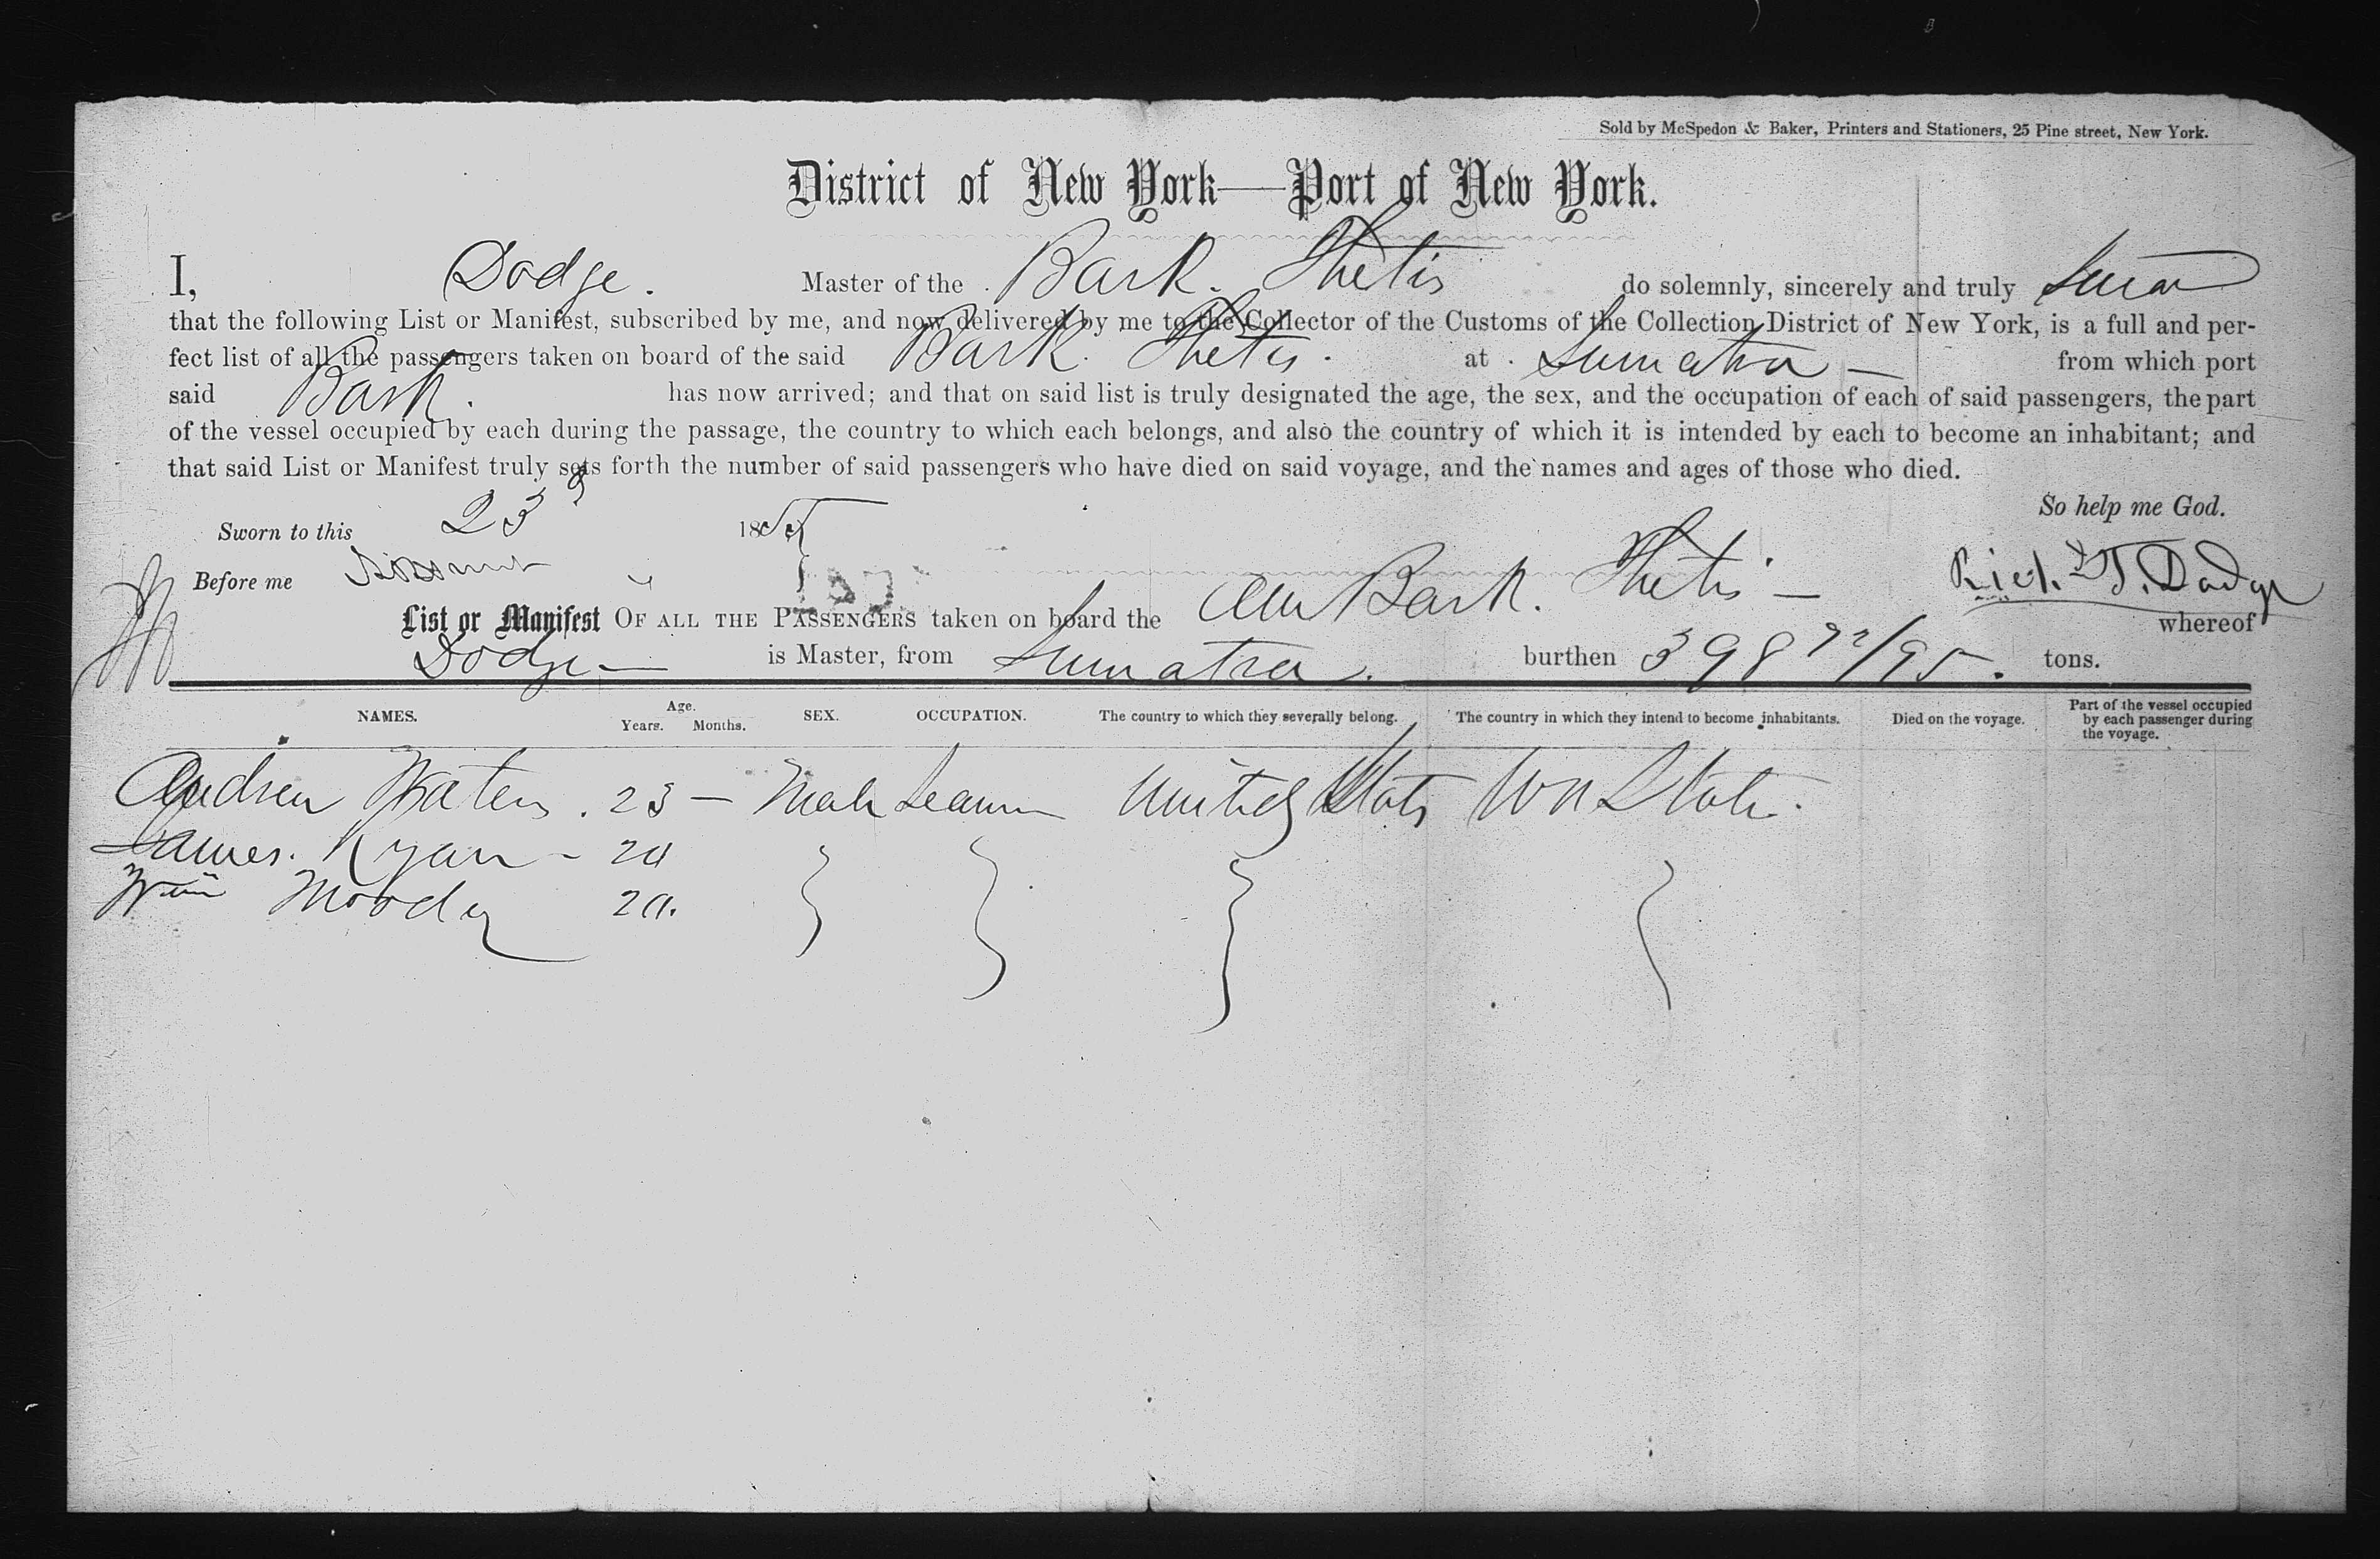 Sold by McSpedon & Baker, Printers and Stationers, 25 Pine street, New York.
District of New York—Port of New York.
I, Dodge. Master of the Bark. Thetis do solemnly, sincerely and truly swear
that the following List or Manifest, subscribed by me, and now delivered by me to the Collector of the Customs of the Collection District of New York, is a full and per-
fect list of all the passengers taken on board of the said Bark. Thetis. at Sumatra — from which port
said Bark. has now arrived; and that on said list is truly designated the age, the sex, and the occupation of each of said passengers, the part
of the vessel occupied by each during the passage, the country to which each belongs, and also the country of which it is intended by each to become an inhabitant; and
that said List or Manifest truly sets forth the number of said passengers who have died on said voyage, and the names and ages of those who died.
So help me God.
Sworn to this 23d 185
Before me
Rich. T. Dodge
List or Manifest OF ALL THE PASSENGERS taken on board the Am Bark. Thetis — whereof
Dodge — is Master, from Sumatra. burthen 398 /95. tons.
NAMES. Age. Years. Months. SEX. OCCUPATION. The country to which they severally belong. The country in which they intend to become inhabitants. Died on the voyage. Part of the vessel occupied by each passenger during the voyage.
Andrew Waters. 23 — Male Seaman United States Un State.
James. Ryan - 20
Wm Moody 20.